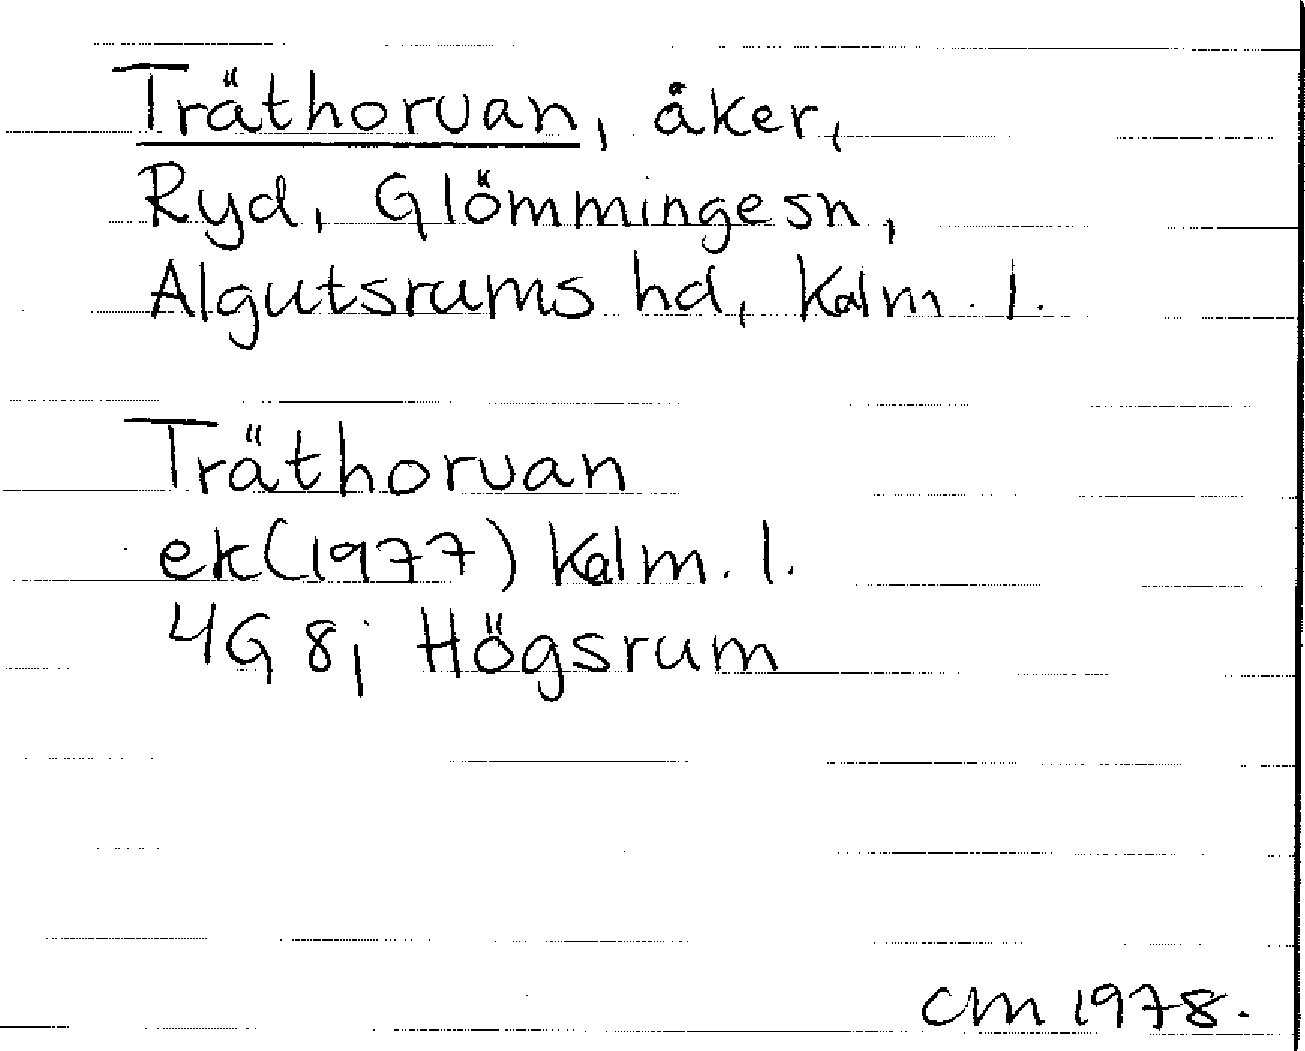 Träthorvan, åker,
Ryd, Glömminge sn,
Algutsrums hd, Kalm. l.
Träthorvan
ek (1977) Kalm. l.
4G 8j Högsrum
CM 1978.